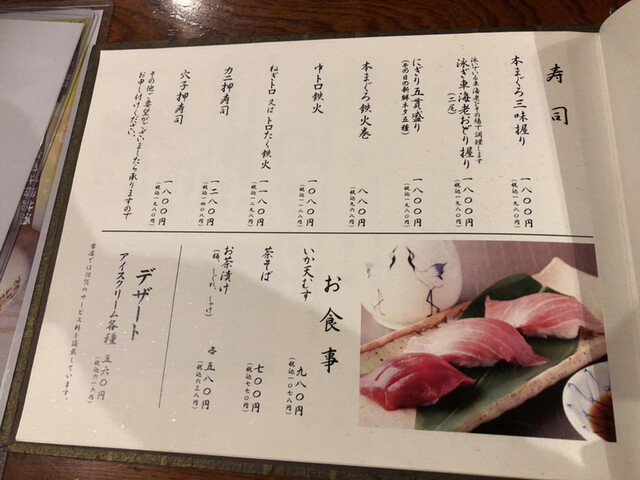 寿司
本まぐろ三味握り
一八〇〇円
(税込一九八〇円)
泳いでいる車海老をその場で調理します
泳ぎ車海老おどり握り
(二尾)
一八〇〇円
(税込一九八〇円)
にぎり五貫盛り
(本の日の新鮮ネタ五種)
一八〇〇円
(税込一九八〇円)
本まぐろ鉄火巻
八八〇円
(税込九六八円)
中トロ鉄火
一〇八〇円
(税込一一八八円)
ねぎトロ 又は トロたく鉄火
一一八〇円
(税込一二九八円)
カニ押寿司
一二八〇円
(税込一四〇八円)
穴子押寿司
一八〇〇円
(税込一九八〇円)
その他ご要望がございましたら承りますので
お申し付けください。
お食事
いか天むす
九八〇円
(税込一〇七八円)
茶そば
七〇〇円
(税込七七〇円)
お茶漬け
(梅、しぐれ、しゃけ)
各 五八〇円
(税込六三八円)
デザート
アイスクリーム各種 五六〇円
(税込六一六円)
当店では別途のサービス料を頂戴しています。